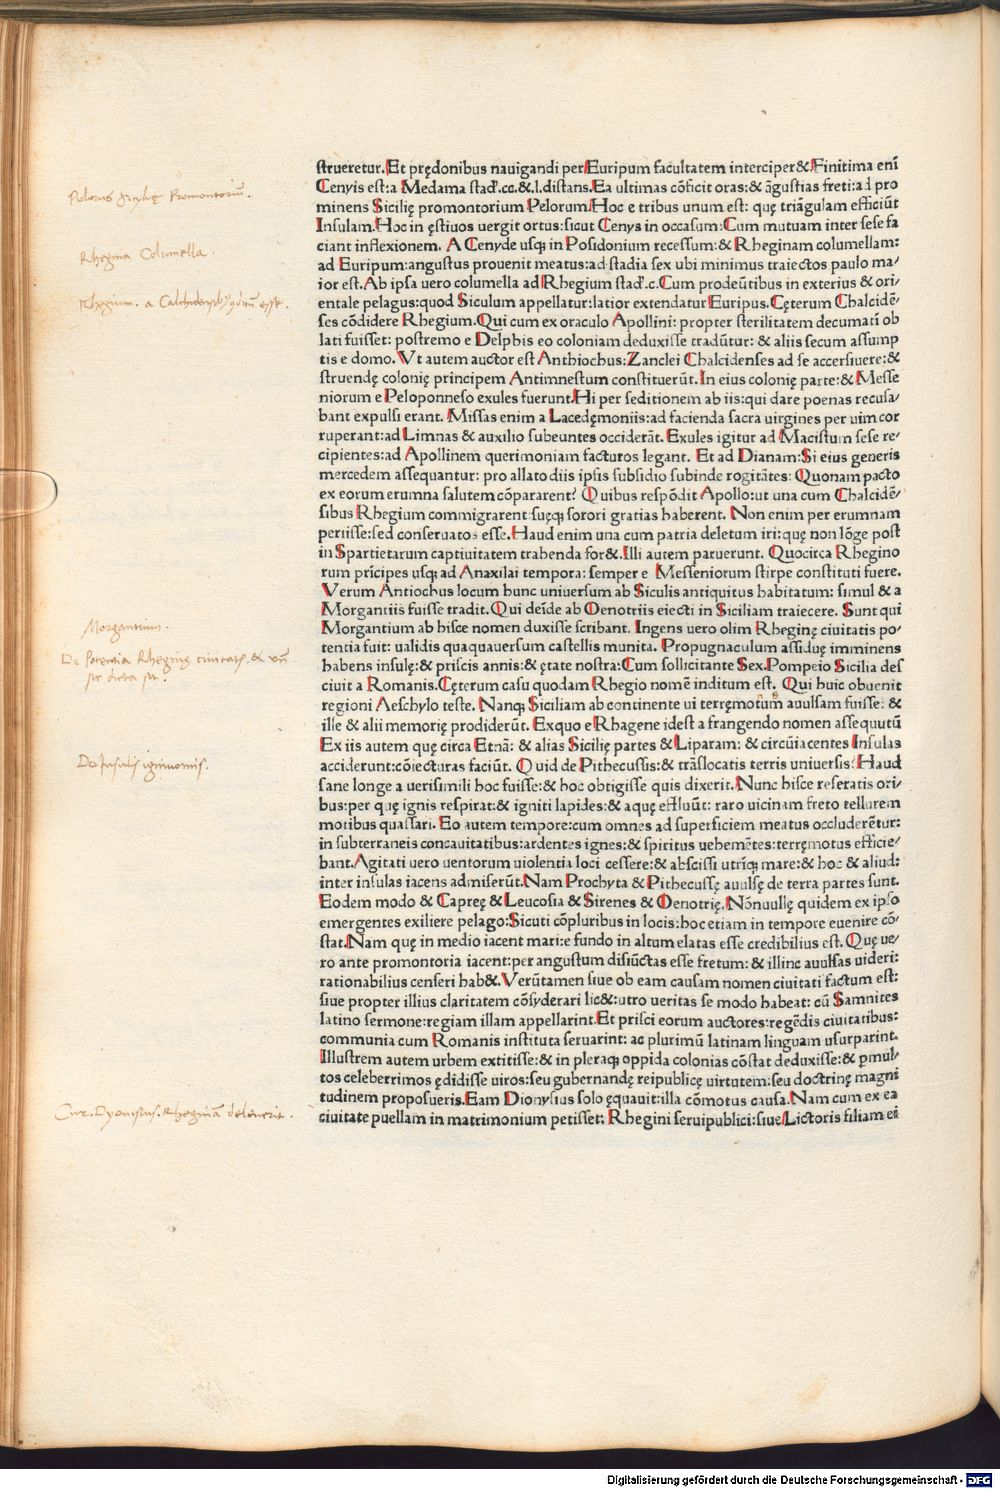 strueretur. Et prędonibus nauigandi per Euripum facultatem interciper&. Finitima enī
Cenyis est: a Medama stad'. cc. &. l. distans. Ea ultimas cōficit oras: & āgustias freti: ad pro
minens Sicilię promontorium Pelorum. Hoc e tribus unum est: quę triāgulam efficiūt
Insulam. Hoc in ęstiuos uergit ortus: sicut Cenys in occasum: Cum mutuam inter sese fa
ciant inflexionem. A Cenyde usq; in Posidonium recessum: & Rheginam columellam:
ad Euripum: angustus prouenit meatus: ad stadia sex ubi minimus traiectos paulo ma/
ior est. Ab ipsa uero columella ad Rhegium stad'. c. Cum prodeūtibus in exterius & ori/
entale pelagus: quod Siculum appellatur: latior extendatur Euripus. Cęterum Chalcidē/
ses cōdidere Rhegium. Qui cum ex oraculo Apollini: propter sterilitatem decumati ob
lati fuisset: postremo e Delphis eo coloniam deduxisse tradūtur: & aliis secum assump
tis e domo. Vt autem auctor est Anthiochus: Zanclei Chalcidenses ad se accersiuere: &
struendę colonię principem Antimnestum constituerūt. In eius colonię parte: & Messe
niorum e Peloponneso exules fuerunt. Hi per seditionem ab iis: qui dare poenas recusa/
bant expulsi erant. Missas enim a Lacedęmoniis: ad facienda sacra uirgines per uim cor
ruperant: ad Limnas & auxilio subeuntes occiderāt. Exules igitur ad Macistum sese re/
cipientes: ad Apollinem querimoniam facturos legant. Et ad Dianam: Si eius generis
mercedem assequantur: pro allato diis ipsis subsidio subinde rogitātes: Quonam pacto
ex eorum erumna salutem cōpararent? Quibus respōdit Apollo: ut una cum Chalcidē/
sibus Rhegium commigrarent: suęq; sorori gratias haberent. Non enim per erumnam
periisse: sed conseruatos esse. Haud enim una cum patria deletum iri: quę non lōge post
in Spartietarum captiuitatem trahenda for&. Illi autem paruerunt. Quocirca Rhegino
rum prīcipes usq; ad Anaxilai tempora: semper e Messeniorum stirpe constituti fuere.
Verum Antiochus locum hunc uniuersum ab Siculis antiquitus habitatum: simul & a
Morgantiis fuisse tradit. Qui deīde ab Oenotriis eiecti in Siciliam traiecere. Sunt qui
Morgantium ab hisce nomen duxisse scribant. Ingens uero olim Rheginę ciuitatis po/
tentia fuit: ualidis quaquauersum castellis munita. Propugnaculum assiduę imminens
habens insulę: & priscis annis: & ętate nostra: Cum sollicitante Sex. Pompeio Sicilia des
ciuit a Romanis. Cęterum casu quodam Rhegio nomē inditum est. Qui huic obuenit
regioni Aeschylo teste. Nanq; Siciliam ab continente ui terręmotum auulsam fuisse: &
ille & alii memorię prodiderūt. Exquo e Rhagene idest a frangendo nomen assequutū
Ex iis autem quę circa Etnā: & alias Sicilię partes & Liparam: & circūiacentes Insulas
acciderunt: cōiecturas faciūt. Quid de Pithecussis: & trāslocatis terris uniuersis? Haud
sane longe a uerisimili hoc fuisse: & hoc obtigisse quis dixerit. Nunc hisce reseratis ori/
bus: per quę ignis respirat: & igniti lapides: & aquę effluūt: raro uicinam freto tellurem
motibus quassari. Eo autem tempore: cum omnes ad superficiem meatus occluderētur:
in subterraneis concauitatibus: ardentes ignes: & spiritus uehemētes: terręmotus efficie/
bant. Agitati uero uentorum uiolentia loci cessere: & abscissi utriq; mare: & hoc & aliud:
inter insulas iacens admiserūt. Nam Prochyta & Pithecussę auulsę de terra partes sunt.
Eodem modo & Capreę & Leucosia & Sirenes & Oenotrię. Nōnuullę quidem ex ipso
emergentes exiliere pelago: Sicuti cōpluribus in locis: hoc etiam in tempore euenire cō/
stat. Nam quę in medio iacent mari: e fundo in altum elatas esse credibilius est. Quę ue/
ro ante promontoria iacent: per angustum disiūctas esse fretum: & illinc auulsas uideri:
rationabilius censeri hab&. Verūtamen siue ob eam causam nomen ciuitati factum est:
siue propter illius claritatem cōsyderari lic&: utro ueritas se modo habeat: cū Samnites
latino sermone: regiam illam appellarint. Et prisci eorum auctores: regēdis ciuitatibus:
communia cum Romanis instituta seruarint: ac plurimū latinam linguam usurparint.
Illustrem autem urbem extitisse: & in pleraq; oppida colonias cōstat deduxisse: & ꝑmul/
tos celeberrimos ędidisse uiros: seu gubernandę reipublicę uirtutem: seu doctrinę magni
tudinem proposueris. Eam Dionysius solo ęquauit: illa cōmotus causa. Nam cum ex ea
ciuitate puellam in matrimonium petisset: Rhegini seruipublici: siue Lictoris filiam ei
Pelorus Sicylię Promontoriū.
Rhegina Columella.
Rhegium. a Calchidensib9
Morgantium.
De Potentia Rheginę ciuitatis. & vn̄
sic dicta sit.
De Insulis ignivomis.
Cur. Dyonisius. Rheginā deleuerit.
Digitalisierung gefördert durch die Deutsche Forschungsgemeinschaft - DFG